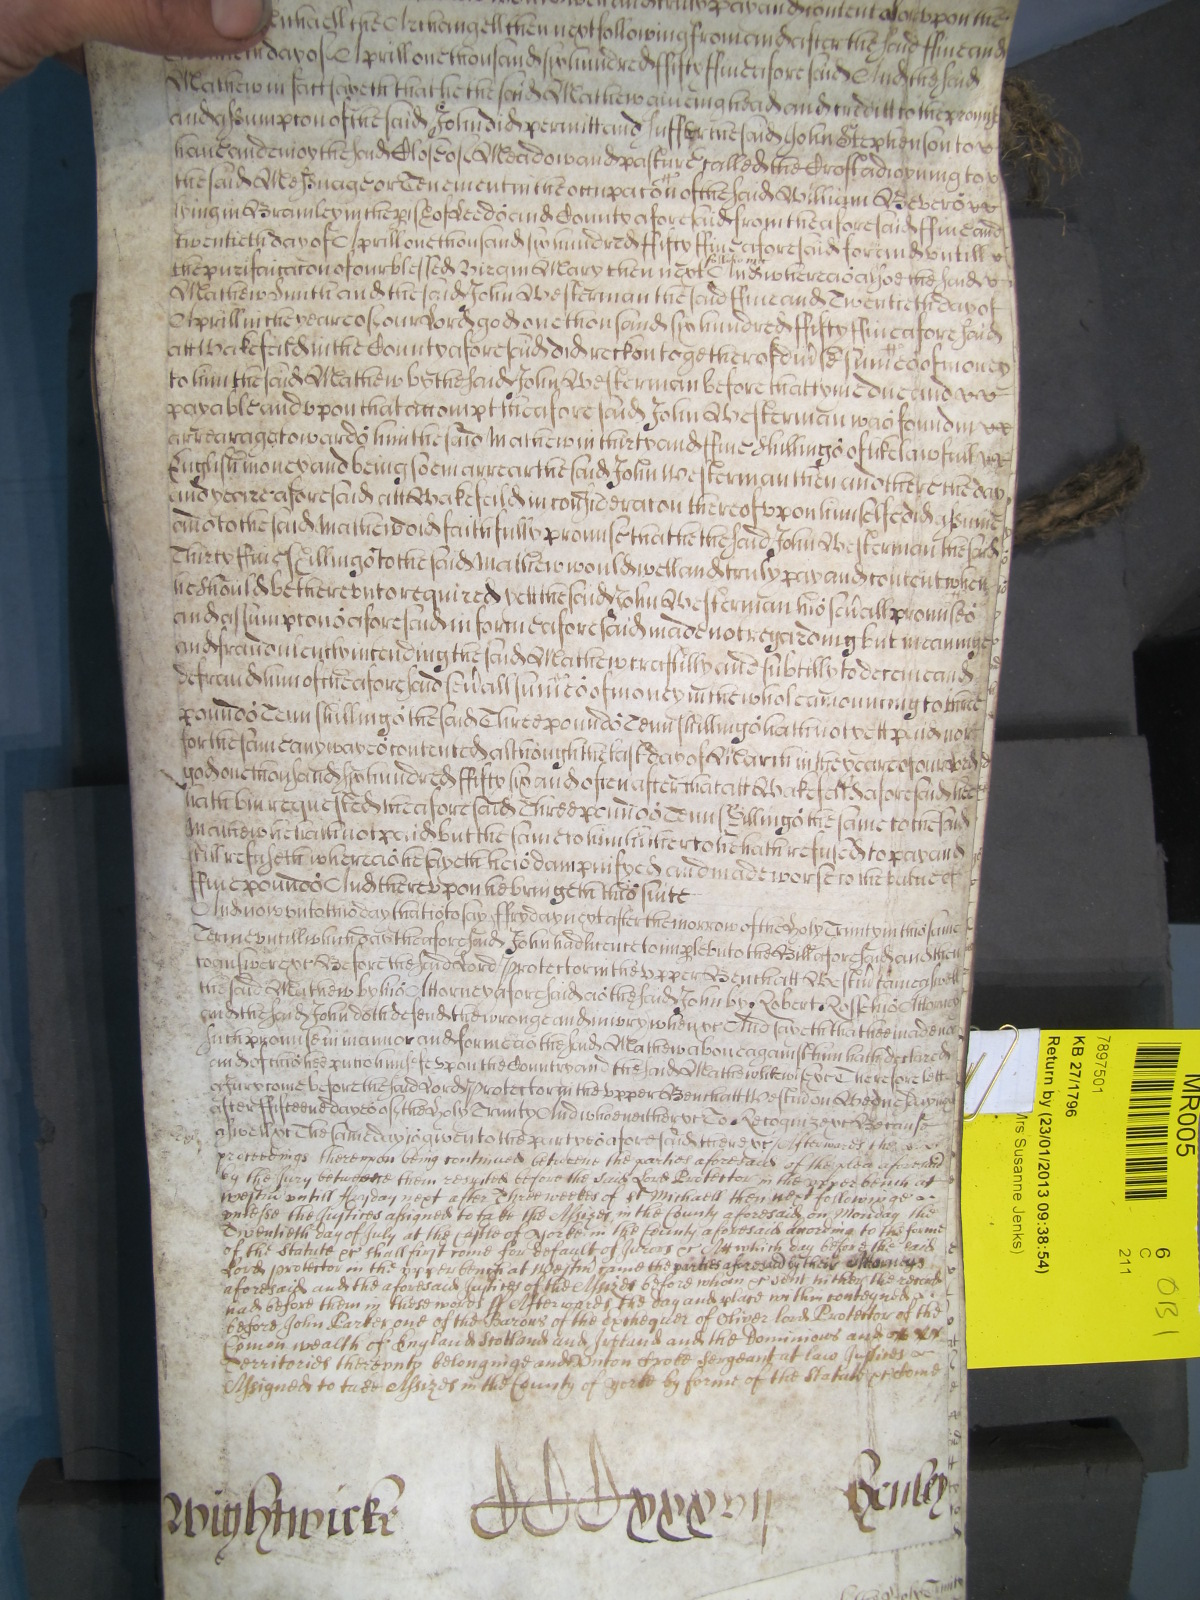 well and truly pay and content
Michaell the Archangell then next following from and after the said ffive and
Twentieth day of Aprill one thousand six hundred ffifty ffive aforesaid And the said
Mathew in fact sayeth that he the said Mathew giveing head and creditt to the promise
and assumpcon of the said John did permitt and suffer the said John Stephenson to
have and enioy the said Close of Meadow and pasture called the Croft adioyning to
the said Messuage or Tenement in the occupacon of the said William Beverō
lying in Bramley in the pish of Leedō and County aforesaid from the aforesaid ffive and
twentieth day of Aprill one thousand six hundred ffifty ffive aforesaid for and untill
the purificacon of our blessed Virgin Mary then next following And whereas alsoe the said
Mathew Smith and the said John Westerman the said ffive and Twentieth day of
Aprill in the yeare of our Lord god one thousand six hundred ffifty ffive aforesaid
att Wakefeild in the County aforesaid did reckon together of divse summes of money
to him the said Mathew by the said John Westerman before that tyme due and
payable and upon that accompt the aforesaid John Westerman was found in
arrearages towards him the said Mathew in thirty and ffive shillings of like lawfull
English money and being soe in arreare the said John Westerman then and there the day
and yeare aforesaid att Wakefeild in consideracon thereof upon himselfe did assume
and to the said Mathew did faithfully promise that he the said John Westerman the said
Thirty ffive shillings to the said Mathew would well and truly pay and content when
he should be thereunto required yett the said John Westerman his sevall promises
and assumpcons aforesaid in forme aforesaid made not regarding but meaninge
and fraudulently intending the said Mathew craftilly and subtilly to deceive and
defraud him of the aforesaid sevall summes of money in the whole amounting to three
pounds Tenn shillings the said Three pounds Tenn shillings hath not yett paid nor
for the same any wayes contented although the last day of March in the yeare of our Lord
god one thousand six hundred ffifty six and often after that att Wakefeild aforesaid hee
hath bin requested the aforesaid Three pounds Tenn shillings the same to the said
Mathew he hath not paid but the same to him hitherto he hath refused to pay and
still refuseth whereas he sayeth he is dampnifyed and made worse to the value of
ffive pounds And thereupon he bringeth this suite
And now unto this day that is to say ffryday next after the morrow of the Holy Trinity in this same
Terme untill which day the aforesaid John had licence to imple unto the Bill aforesaid and then
to answere &c Before the said Lord Protector in the upper Bench att Westm came aswell
the said Mathew by his Attorney aforesaid as the said John by Robert Rose his Attorney
and the said John doth defend the wronge and iniury when &c And sayeth that hee made noe
such promise in mannor and forme as the said Mathew above against him hath declared
and of this hee puts himselfe upon the Country and the said Mathew likewise &c Therefore lett
a Jury come before the said Lord Protector in the upper Bench att Westm on Wednesday next
after ffifteene dayes of the Holy Trinity And who neither &c To Recognize &c Because
aswell &c The same day is given to the partyes aforesaid there &c Afterwards the
proceedings thereupon being continued betweene the parties aforesaid of the plea aforesaid
by the Jury betweene them respited before the said Lord Protector in the upper bench at
westm untill ffryday next after Three weekes of st Michaell then next followinge
unlesse the Justices assigned to take the Assizes in the County aforesaid on Monday the
Twentieth day of July at the Castle of Yorke in the County aforesaid according to the forme
of the Statute &c shall first come for default of Jurors &c Att which day before the said
Lord protector in the upper bench at westm came the parties aforesaid by their Attorneys
aforesaid and the aforesaid Justices of the Assizes before whom &c sent hither the record
had before them in these words ss Afterwards the day and place within conteyned
before John Parker one of the Barons of the exchequer of Oliver lord Protector of the
Comon wealth of England Scotland and Ireland and the Dominions and
Territories thereunto belonginge and Unton Croke Sergeant at law Justices
Assigned to take Assizes in the County of yorke by forme of the Statute &c Come
Wightwicke
Henley
MR005
7897501
KB 27/1796
Return by (23/01/2013 09:38:54)
Mrs Susanne Jenks)
6
C
211
OB 1